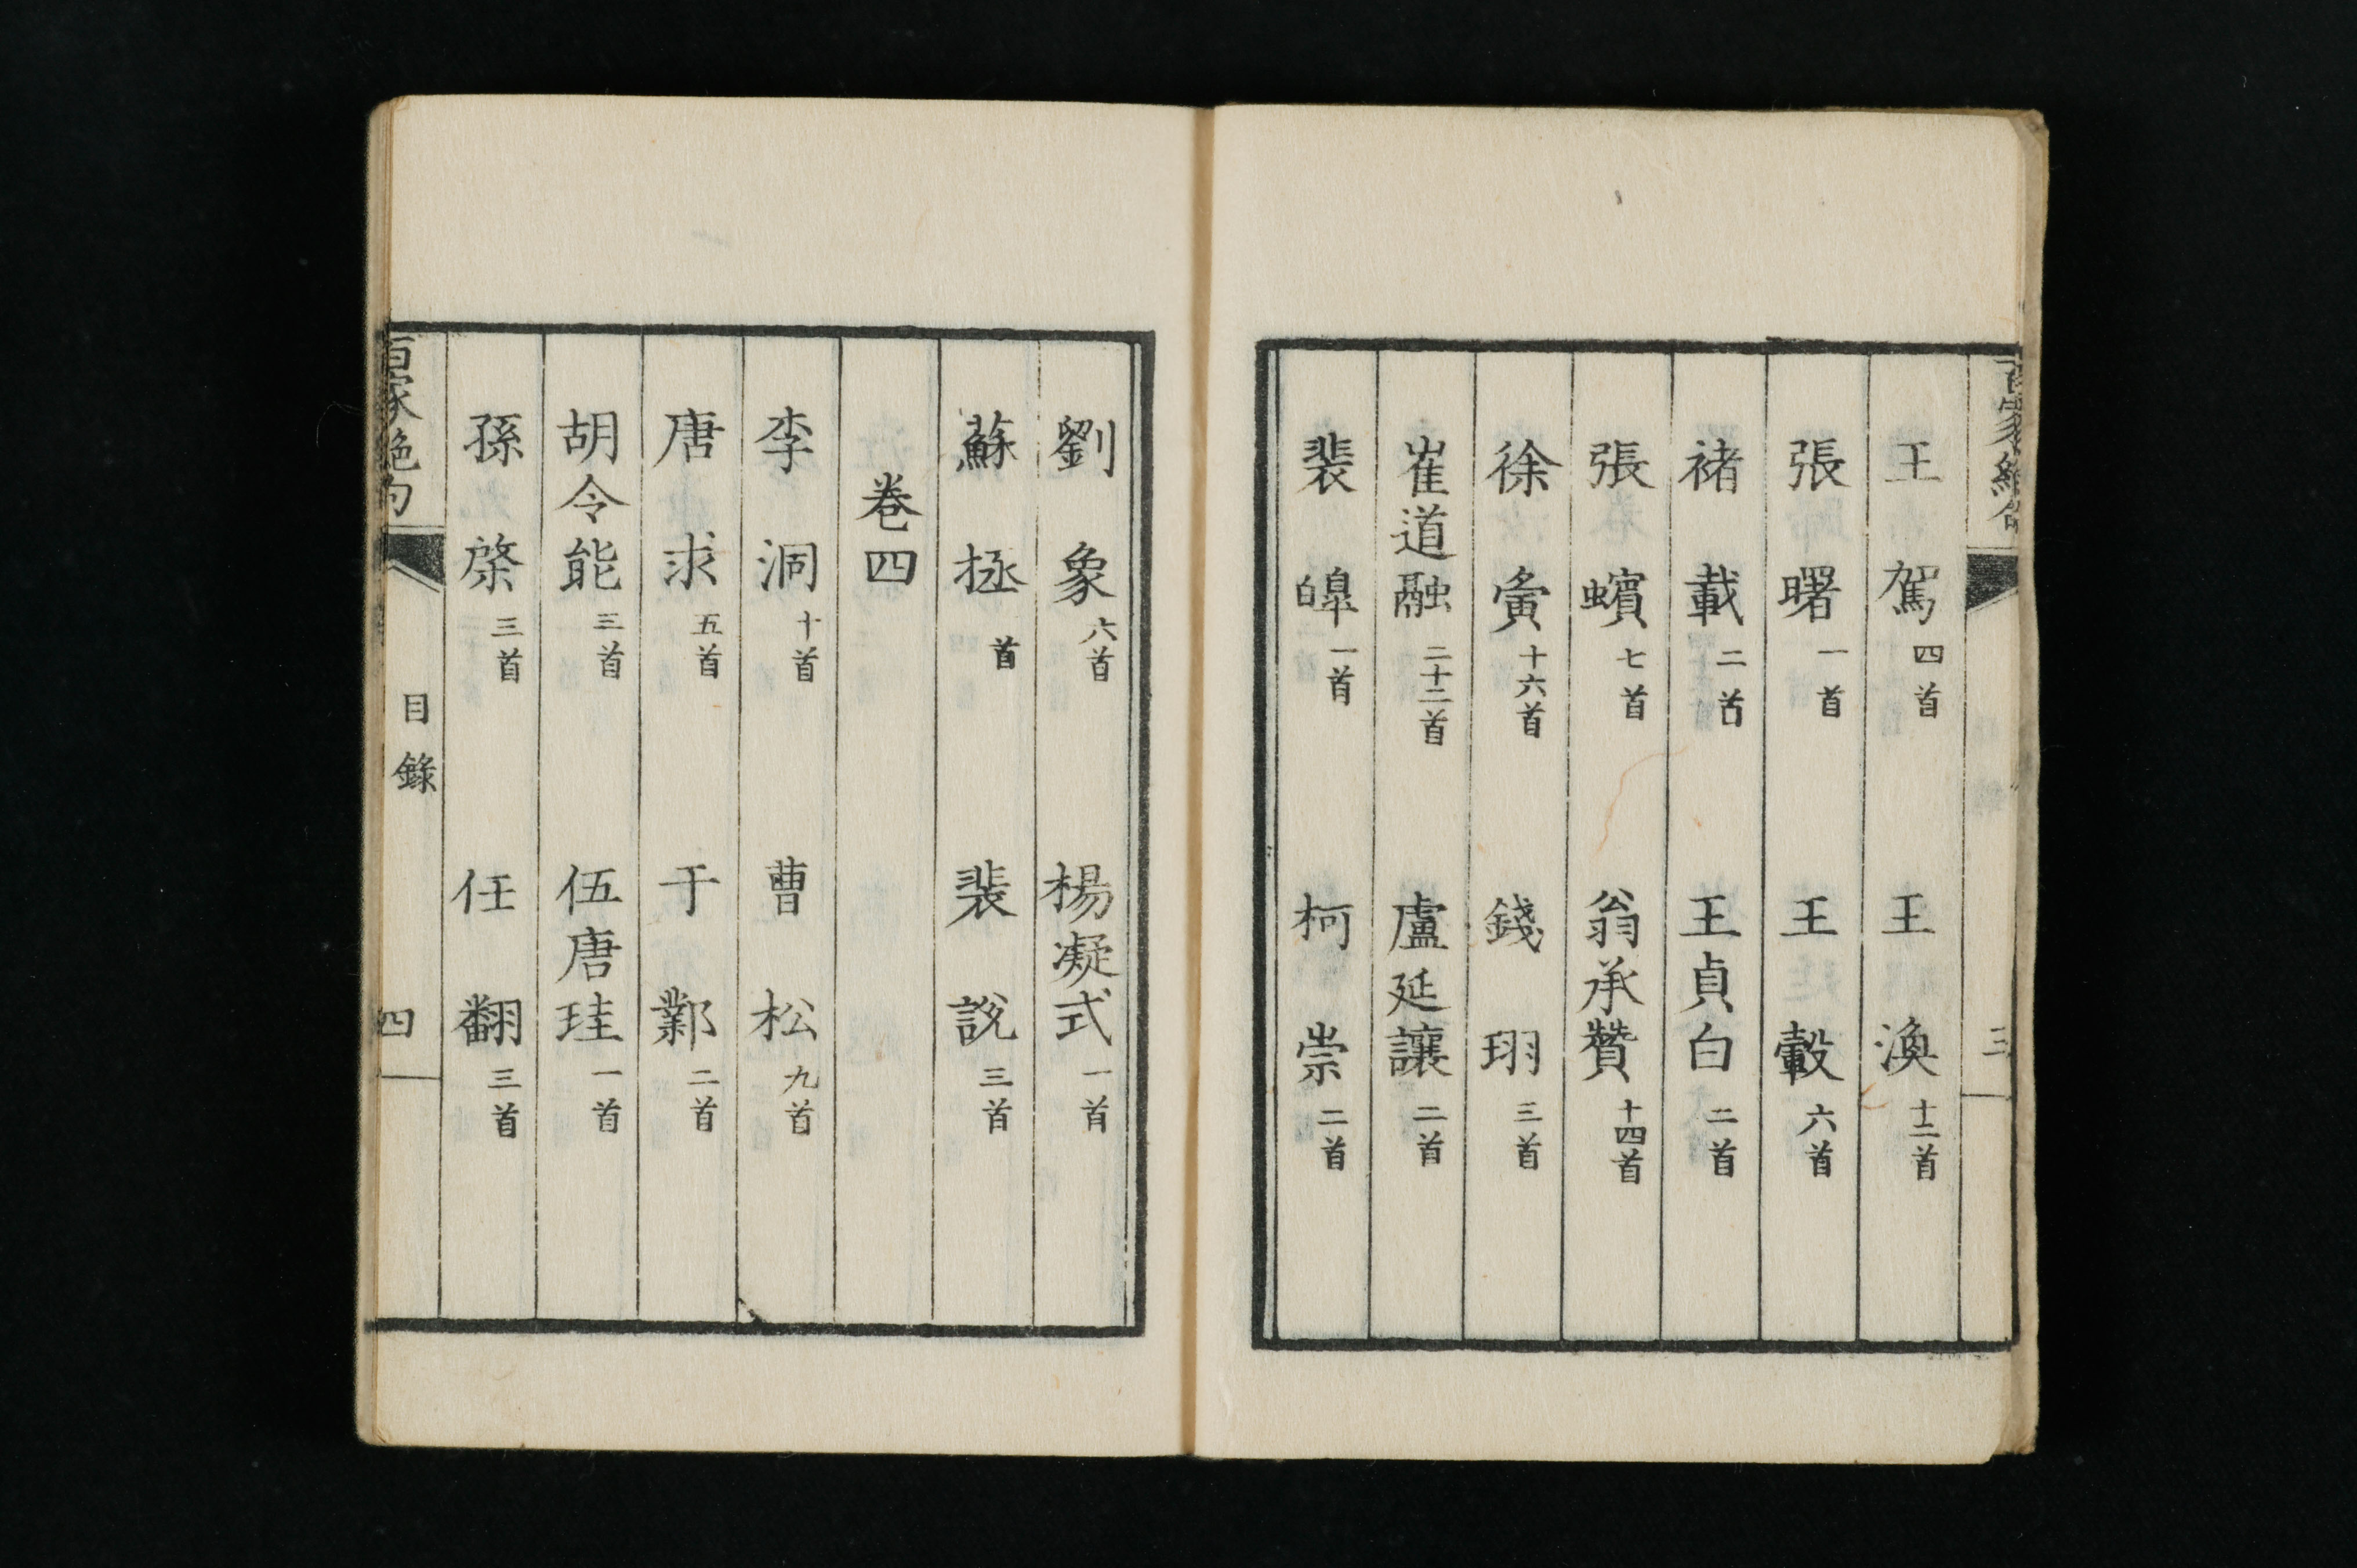 百家絕句
三
王駕 四首 王渙 十二首
張曙 一首 王轂 六首
褚載 二首 王貞白 二首
張蠙 七首 翁承贊 十四首
徐夤 十六首 錢珝 三首
崔道融 二十二首 盧延讓 二首
裴皞 一首 柯崇 二首
劉象 六首 楊凝式 一首
蘇拯 首 裴說 三首
卷四
李洞 十首 曹松 九首
唐求 五首 于鄴 二首
胡令能 三首 伍唐珪 一首
孫棨 三首 任翻 三首
百家絕句
目錄
四